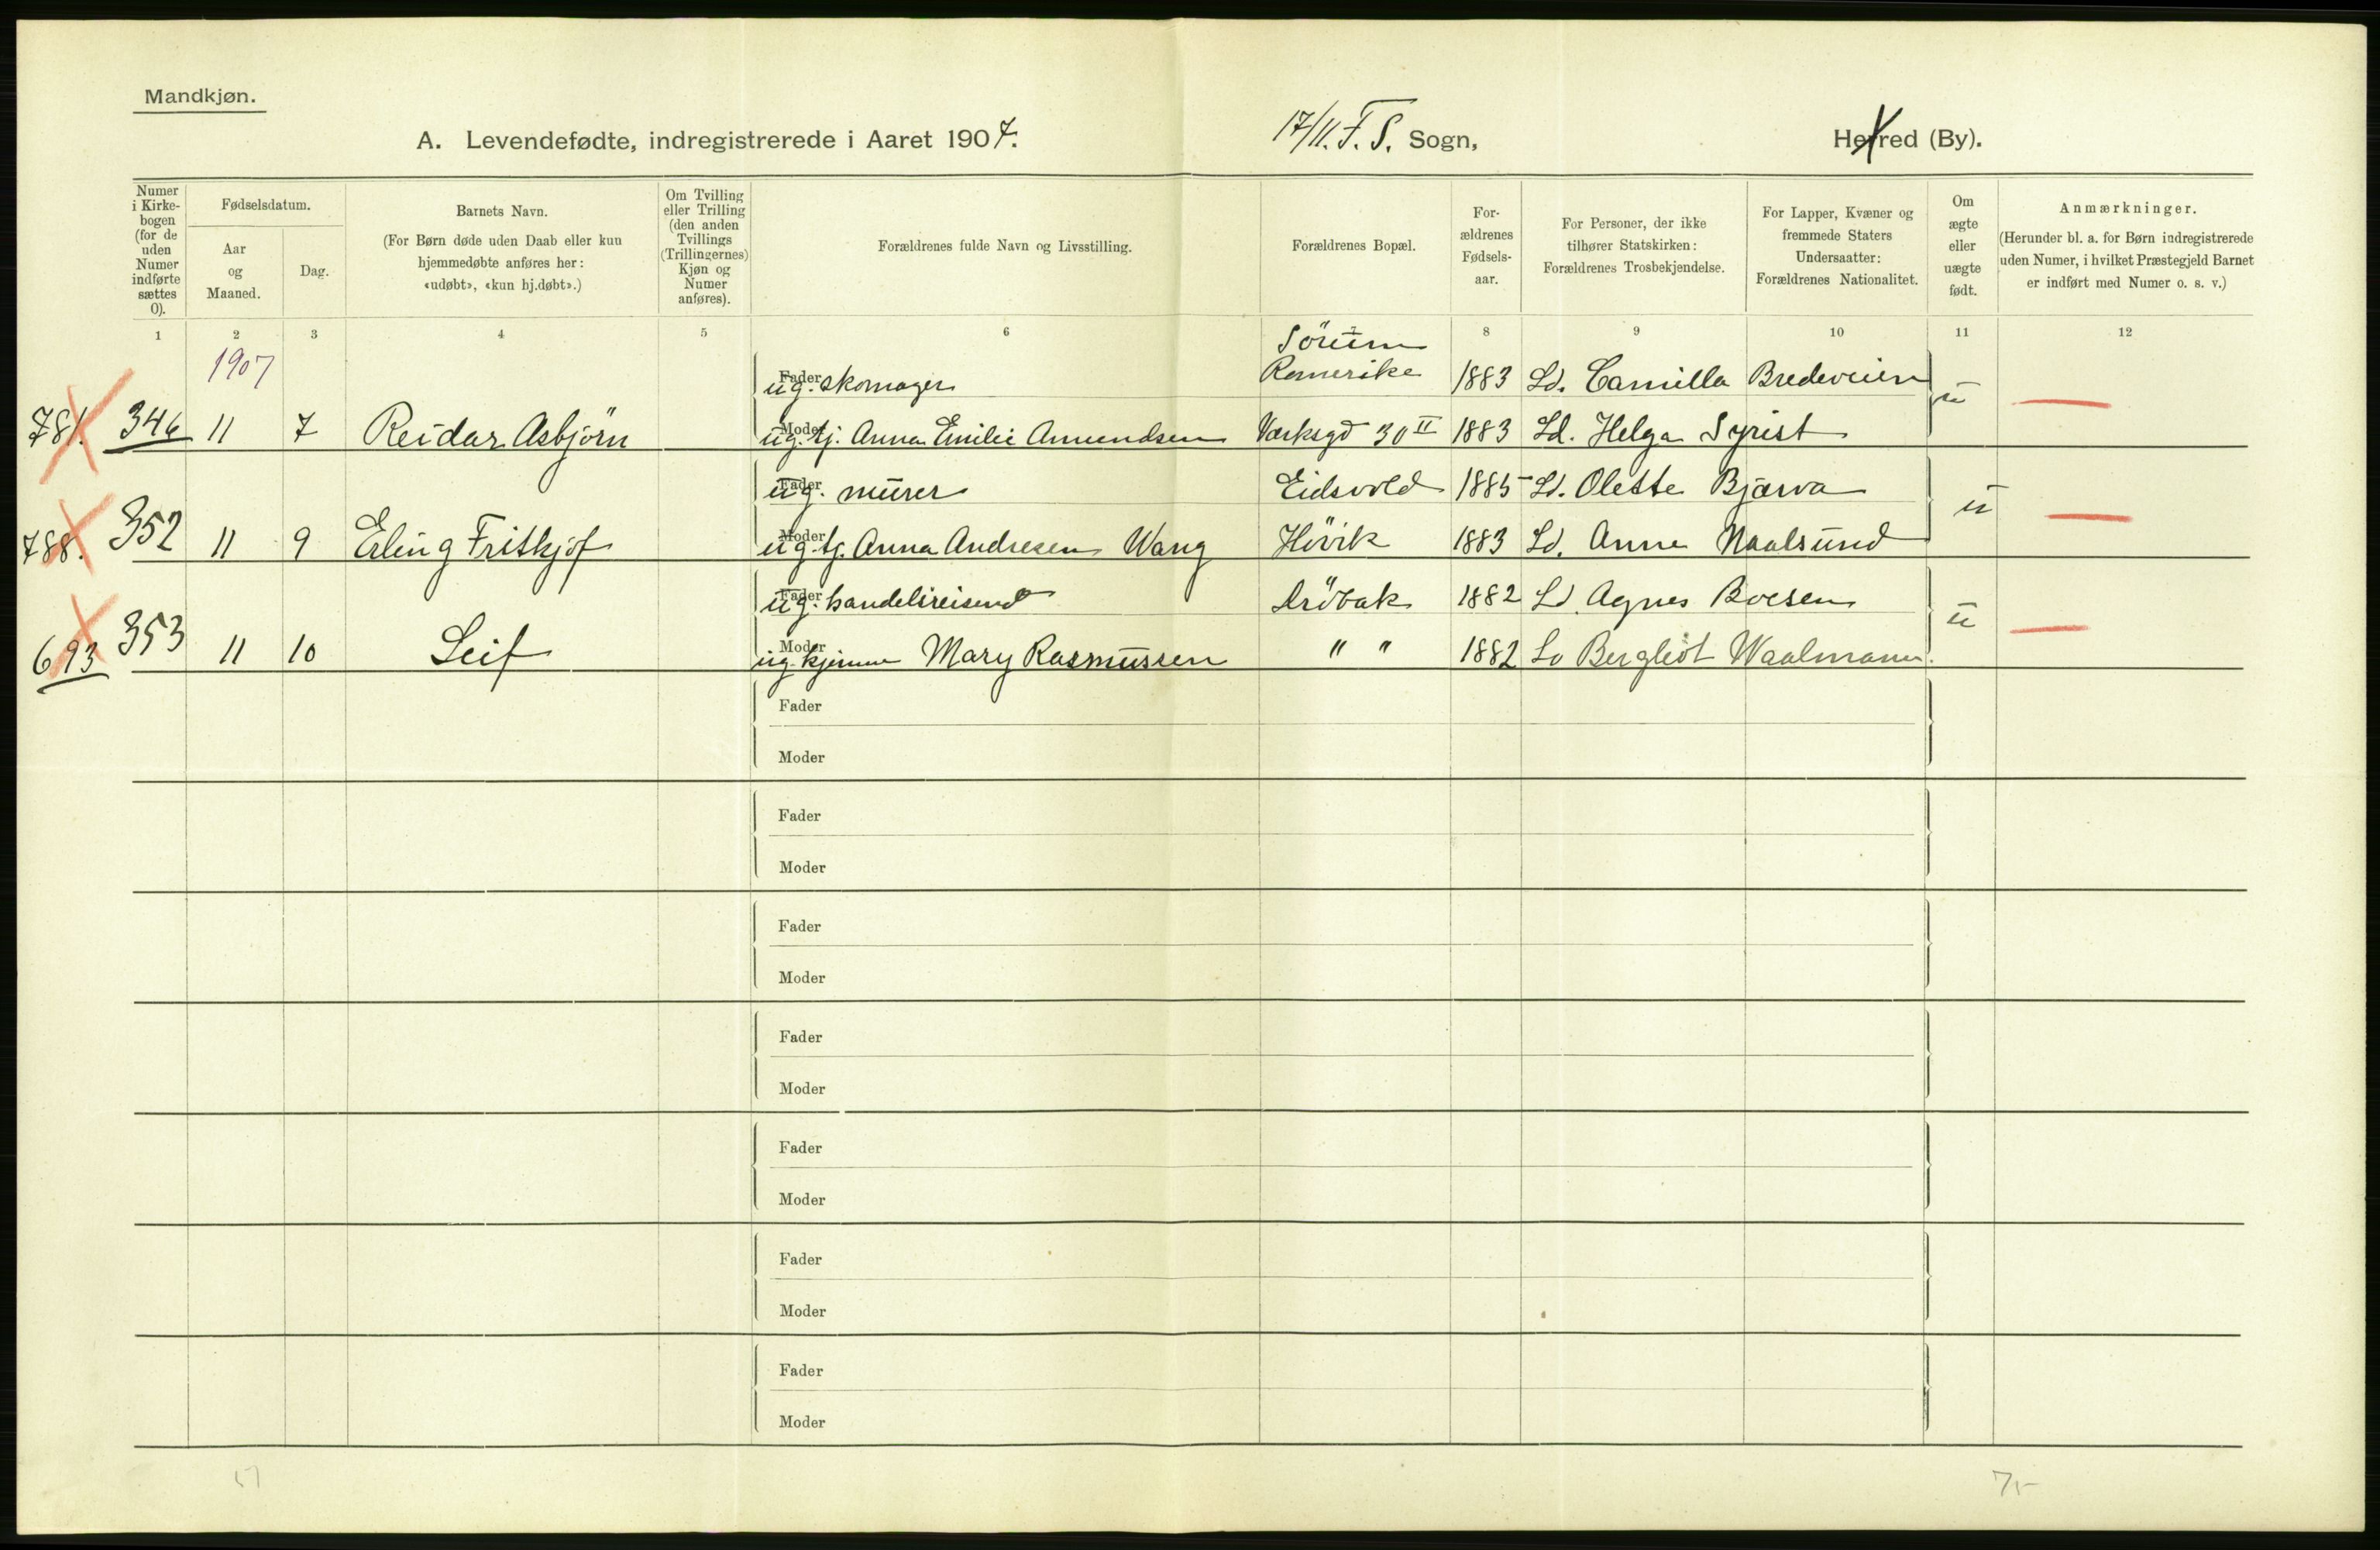 Mandkjøn.
A. Levendefødte, indregistrerede i Aaret 1907.
17/11. F. S. Sogn,
Herred (By).
Numer i Kirke-bogen (for de uden Numer indførte sættes 0).
Fødselsdatum.
Aar og Maaned.
Dag.
Barnets Navn.
(For Børn døde uden Daab eller kun
hjemmedøbte anføres her:
«udøbt», «kun hj.døbt».)
Om Tvilling
eller Trilling
(den anden
Tvillings
(Trillingernes)
Kjøn og
Numer
anføres).
Forældrenes fulde Navn og Livsstilling.
Forældrenes Bopæl.
For-
ældrenes
Fødsels-
aar.
For Personer, der ikke
tilhører Statskirken:
Forældrenes Trosbekjendelse.
For Lapper, Kvæner og
fremmede Staters
Undersaatter:
Forældrenes Nationalitet.
Om
ægte
eller
uægte
født.
Anmærkninger.
(Herunder bl. a. for Børn indregistrerede
uden Numer, i hvilket Præstegjeld Barnet
er indført med Numer o. s. v.)
1 2 3 4 5 6 7 8 9 10 11 12
1907
Sörum
Fader ug. skomager Romerike 1883 Ld. Camilla Bredeveien
781. 346 11 7 Reidar Asbjörn Moder ug. tj. Anna Emilie Amundsen Værksgd 30 II 1883 Ld. Helga Syrist u
Fader ug. murer Eidsvold 1885 Ld. Olette Bjærva
788. 352 11 9 Erling Frithjof Moder ug. tj. Anna Andresen Wang Hövik 1883 Ld. Anne Naalsund u
Fader ug. handelsreisend Dröbak 1882 Ld. Agnes Boesen
693 353 11 10 Leif Moder ug. Mary Rasmussen " " 1882 Ld Bergliot Waalmann. u
Fader
Moder
Fader
Moder
Fader
Moder
Fader
Moder
Fader
Moder
Fader
Moder
Fader
Moder